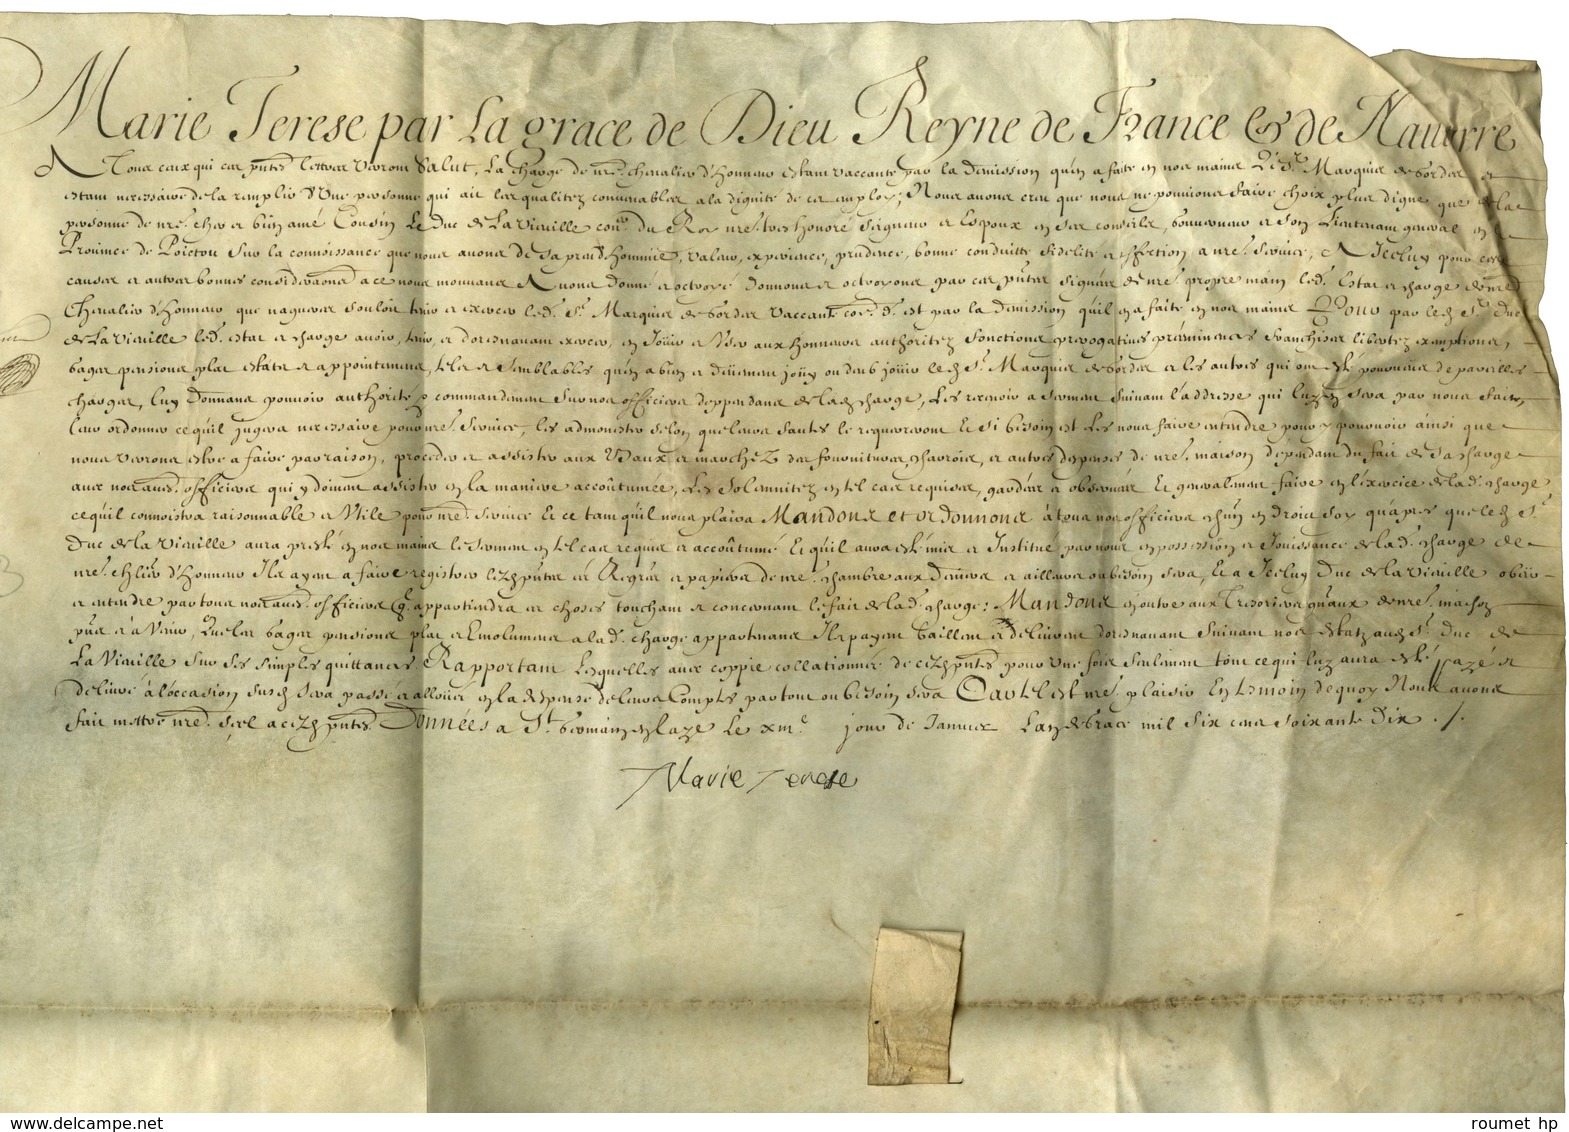 Marie Terese par La grace de Dieu Reyne de France & de Nauarre
A Tous ceux qui ces pntes lettres verront Salut, La charge de nre. chevalier d'Honneur estant vaccante par la demission qu'en a faite en nos mains Le Sr. Marquis de Gordes et
estant necessaire de la remplir d'Vne personne qui ait les qualitez conuenables a la dignité de cet employ; Nous auons creu que nous ne pouuions faire choix plus digne que de la
personne de nre. cher et bien amé Cousin Le Duc de La Vieuille conr. du Roy nre. tres honoré Seigneur et Espoux en ses conseils, Gouuerneur et son Lieutenant general en la
Prouince de Poictou Sur la connoissance que nous auons de sa preud'hommie, valeur, experience, prudence, bonne conduitte fidelité et affection a nre. Seruice, A Iceluy pour ces
causes et autres bonnes considerations a ce nous mouuans Auons donné et octroyé donnons et octroyons par ces pntes signées de nre. propre main led. Estat et charge de nred.
Cheualier d'Honneur que nagueres souloit tenir et exercer led. Sr. Marquis de Gordes vaccant come. dt. est par la demission qu'il en a faite en nos mains Pour par led. Sr. Duc
de La Vieuille led. estat et charge auoir, tenir, et doresnauant exercer, en Joüir et Vser aux Honneurs authoritez fonctions prerogatiues préeminences franchises libertez exemptions,
gages pensions plat estats et appointemens, tels et semblables qu'en a bien et deüement joüy ou deub joüir led. Sr. Marquis de Gordes et les autres qui ont esté pourueus de pareilles
charges, luy donnant pouuoir authorité & commandement sur nos officiers deppendans de lad. charge, Les receuoir a serment suiuant l'addresse qui luy en sera par nous faite,
leur ordonner ce qu'il jugera necessaire pour nre. seruice, les admonester selon que leurs fautes le requerront Et si besoin est Les nous faire entendre pour y pouruoir ainsi que
nous verrons estre a faire par raison, proceder et assister aux Baux et marchez des fournitures, charrois, et autres despenses de nre. maison dépendant du fait de sa charge
auec nos aud. officiers qui y doiuent assister en la maniere accoûtumée, Les solemnitez en tel cas requises, gardées et obseruées Et generalement faire en l'exercice de lad. charge
ce qu'il connoistra raisonnable et Vtile pour nred. seruice Et ce tant qu'il nous plaira Mandons et ordonnons à tous nos officiers chun en droit soy qu'apres que led. Sr.
Duc de La Vieuille aura presté en nos mains le serment en tel cas requis et accoûtumé Et qu'il aura esté mis et Institué par nous en possession et Joüissance de lad. charge de
nre. chlier d'Honneur Ils ayent a faire registrer lesd. pntes és Regres et papiers de nre. chambre aux deniers et ailleurs ou besoin sera, Et a Iceluy Duc de La Vieuille obeir
et entendre par tous nos aud. officiers qu'il appartiendra es choses touchant et concernant le fait de lad. charge: Mandons en outre aux Tresoriers gnaux de nre. maison
pns et a venir, Que les gages pensions plat et Emolumens a lad. charge appartenans Ils payent baillent et deliurent doresnauant suiuant nos estatz aud. Sr. duc de
La Vieuille sur ses simples quittances Rapportant Lesquelles auec coppie collationnée de cesd. pntes pour vne fois seulement tout ce qui luy aura esté payé et
deliuré à l'occasion susd. sera passé et alloüé en la despense de leurs Comptes par tout ou besoin sera Car tel est nre. plaisir En tesmoin de quoy Nous auons
fait mettre nred. Scel a cesd. pntes. Données a St. Germain en laye Le xme. jour de Januier Lan de Grace mil six cens soixante dix ./.
Marie Terese
www.delcampe.net
roumet hp